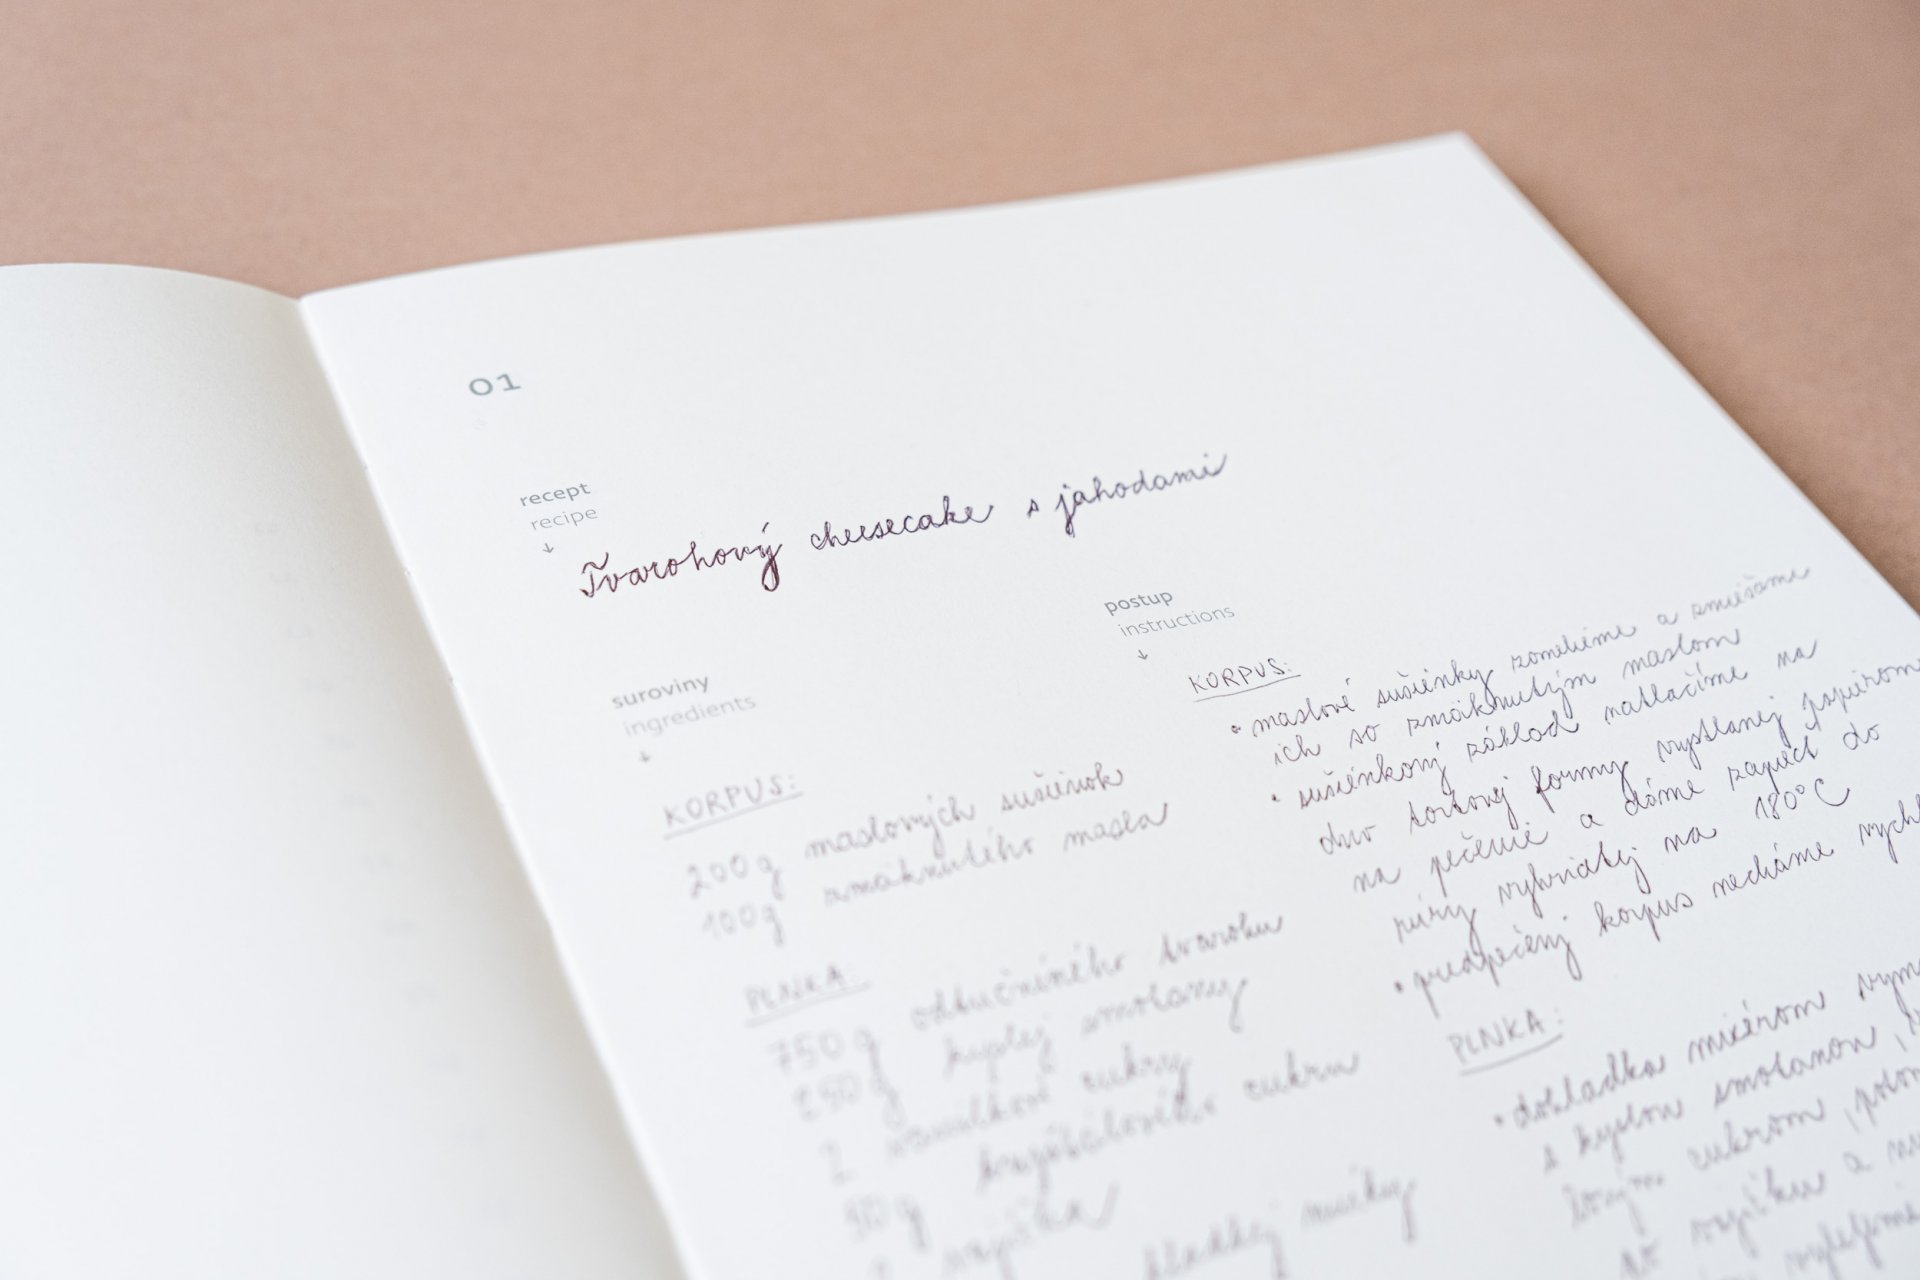 01
recept
recipe
↓
Tvarohový cheesecake s jahodami
suroviny
ingredients
↓
KORPUS:
200g maslových sušienok
100g zmäknutého masla
PLNKA:
750g odtučneného tvarohu
250g kyslej smotany
2 vanilkové cukry
kryštálového cukru
vajíčka
hladkej múky
postup
instructions
↓
KORPUS:
• maslové sušienky zomelieme a zmiešame
ich so zmäknutým maslom
• sušienkový základ natlačíme na
dno tortovej formy vystlanej papierom
na pečenie a dáme zapiecť do
rúry vyhriatej na 180°C
• predpečený korpus necháme
PLNKA:
• dohladka mixérom
s kyslou smotanou,
cukrom,
vajíčku a